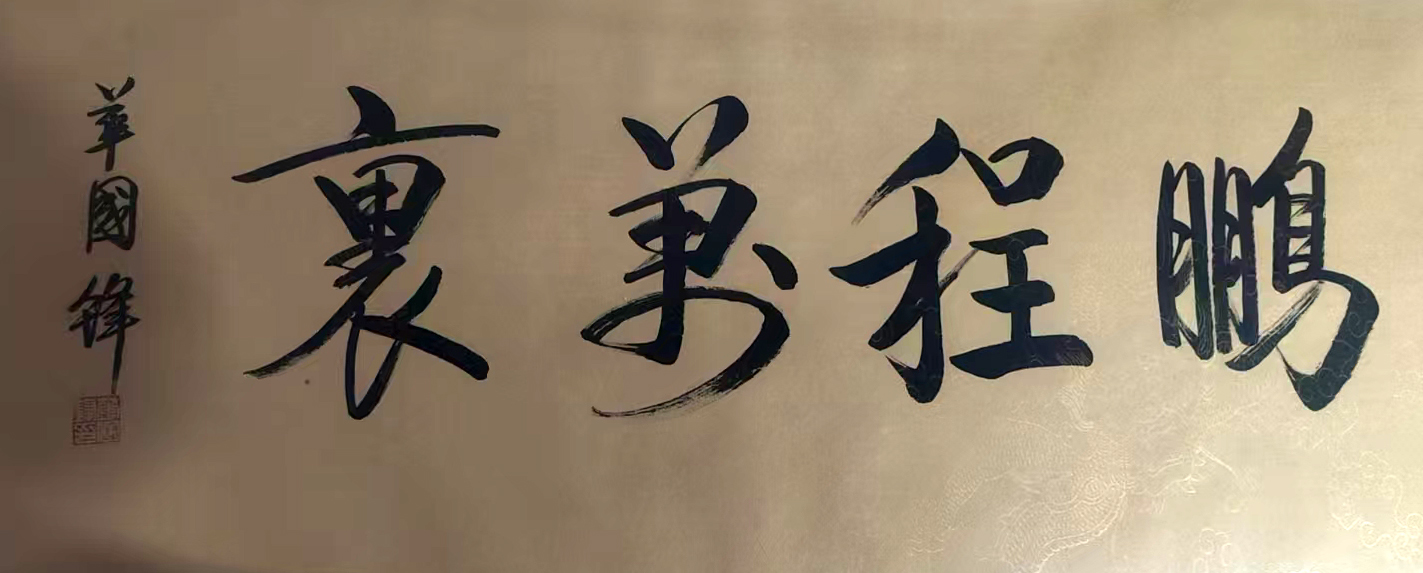 鹏程萬裏
華國鋒